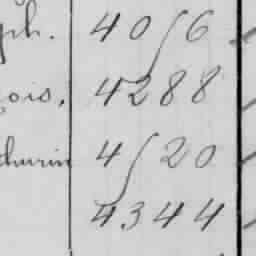 ph. 4056
ois. 4288
thurin 4520
4344